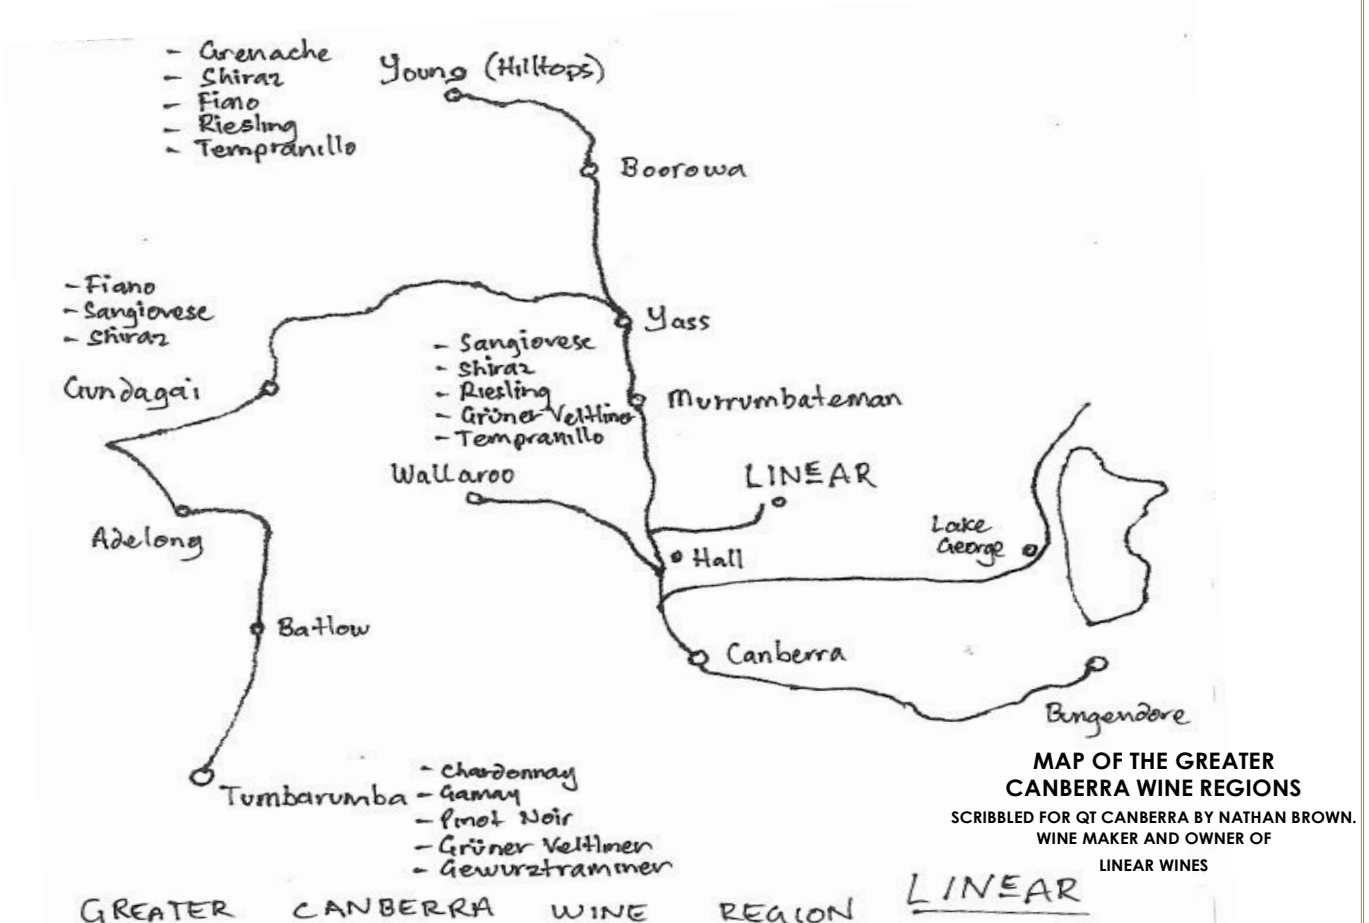 - Grenache
- Shiraz
- Fiano
- Riesling
- Tempranillo
Young (Hilltops)
Boorowa
- Fiano
- Sangiovese
- Shiraz
Gundagai
Yass
- Sangiovese
- Shiraz
- Riesling
- Grüner Veltliner
- Tempranillo
Murrumbateman
Wallaroo
LINEAR
Adelong
Hall
Lake
George
Batlow
Canberra
Bungendore
Tumbarumba
- Chardonnay
- Gamay
- Pinot Noir
- Grüner Veltliner
- Gewurztraminer
MAP OF THE GREATER
CANBERRA WINE REGIONS
SCRIBBLED FOR QT CANBERRA BY NATHAN BROWN.
WINE MAKER AND OWNER OF
LINEAR WINES
GREATER CANBERRA WINE REGION LINEAR